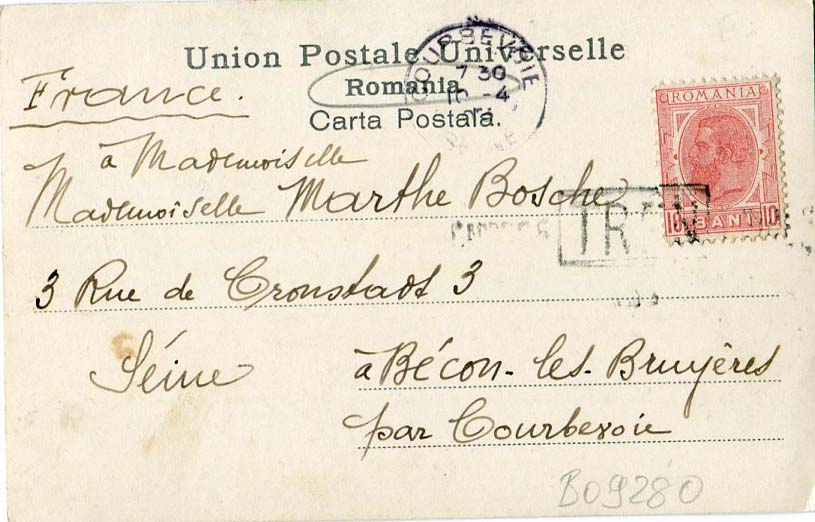 Union Postale Universelle
Romania
Carta Postala.
COURBEVOIE
7 30
-4
France.
ROMANIA
10 BANI 10
TREN
à Mademoiselle
Mademoiselle Marthe Bosche
3 Rue de Cronstadt 3
Séine
à Bécon-les-Bruyères
par Courbevoie
B09280